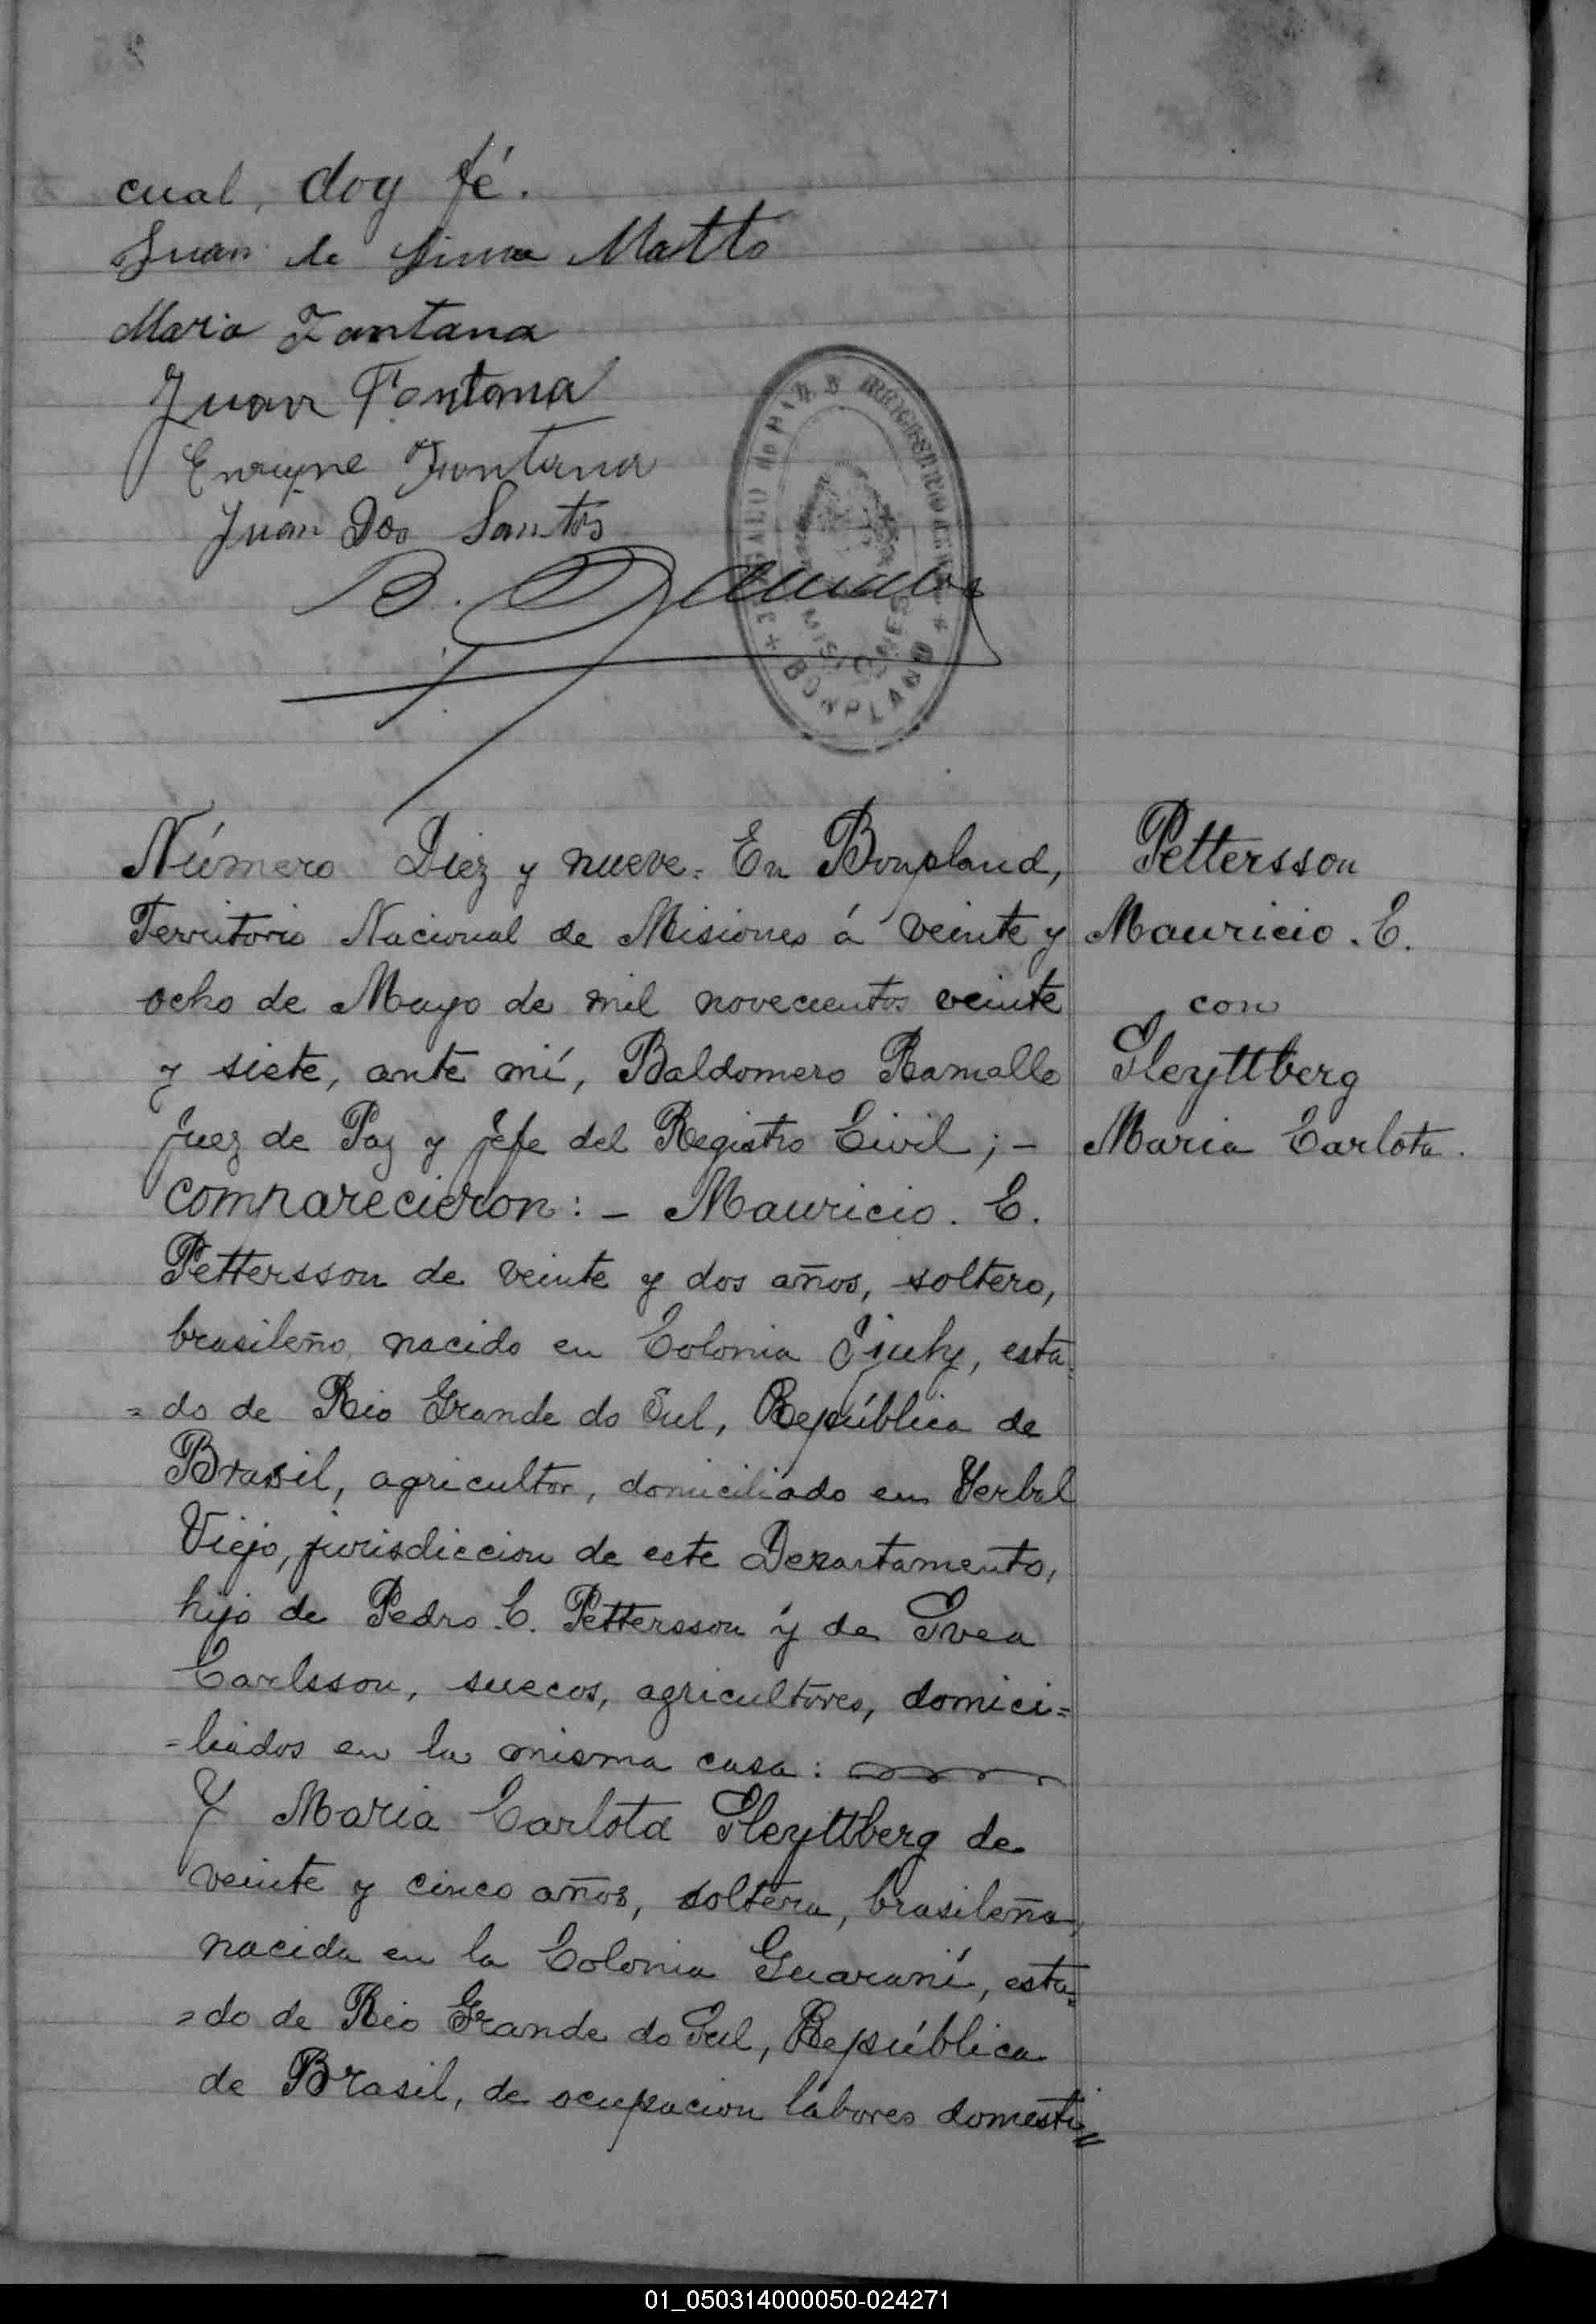 cual, doy fé.
Juan de Lima Matto
Maria Fontana
Juan Fontana
Enrique Fontana
Juan Dos Santos
B. Ramallo
JUZGADO de PAZ Y REGISTRO CIVIL
MISIONES
* BONPLAND *
Número Diez y nueve. En Bonpland,
Territorio Nacional de Misiones á veinte y
ocho de Mayo de mil novecientos veinte
y siete, ante mí, Baldomero Ramallo
Juez de Paz y Jefe del Registro Civil; -
comparecieron: - Mauricio. C.
Pettersson de veinte y dos años, soltero,
brasileño, nacido en Colonia Ijuhy, esta
= do de Rio Grande do Sul, República de
Brasil, agricultor, domiciliado en Yerbal
Viejo, jurisdiccion de este Departamento,
hijo de Pedro. C. Pettersson y de Svea
Carlsson, suecos, agricultores, domici=
=liados en la misma casa:
Y Maria Carlota Sleyttberg de
veinte y cinco años, soltera, brasileña,
nacida en la Colonia Guaraní, esta=
=do de Rio Grande do Sul, República
de Brasil, de ocupacion labores domesti=
Pettersson
Mauricio. C.
con
Sleyttberg
Maria Carlota.
01_050314000050-024271